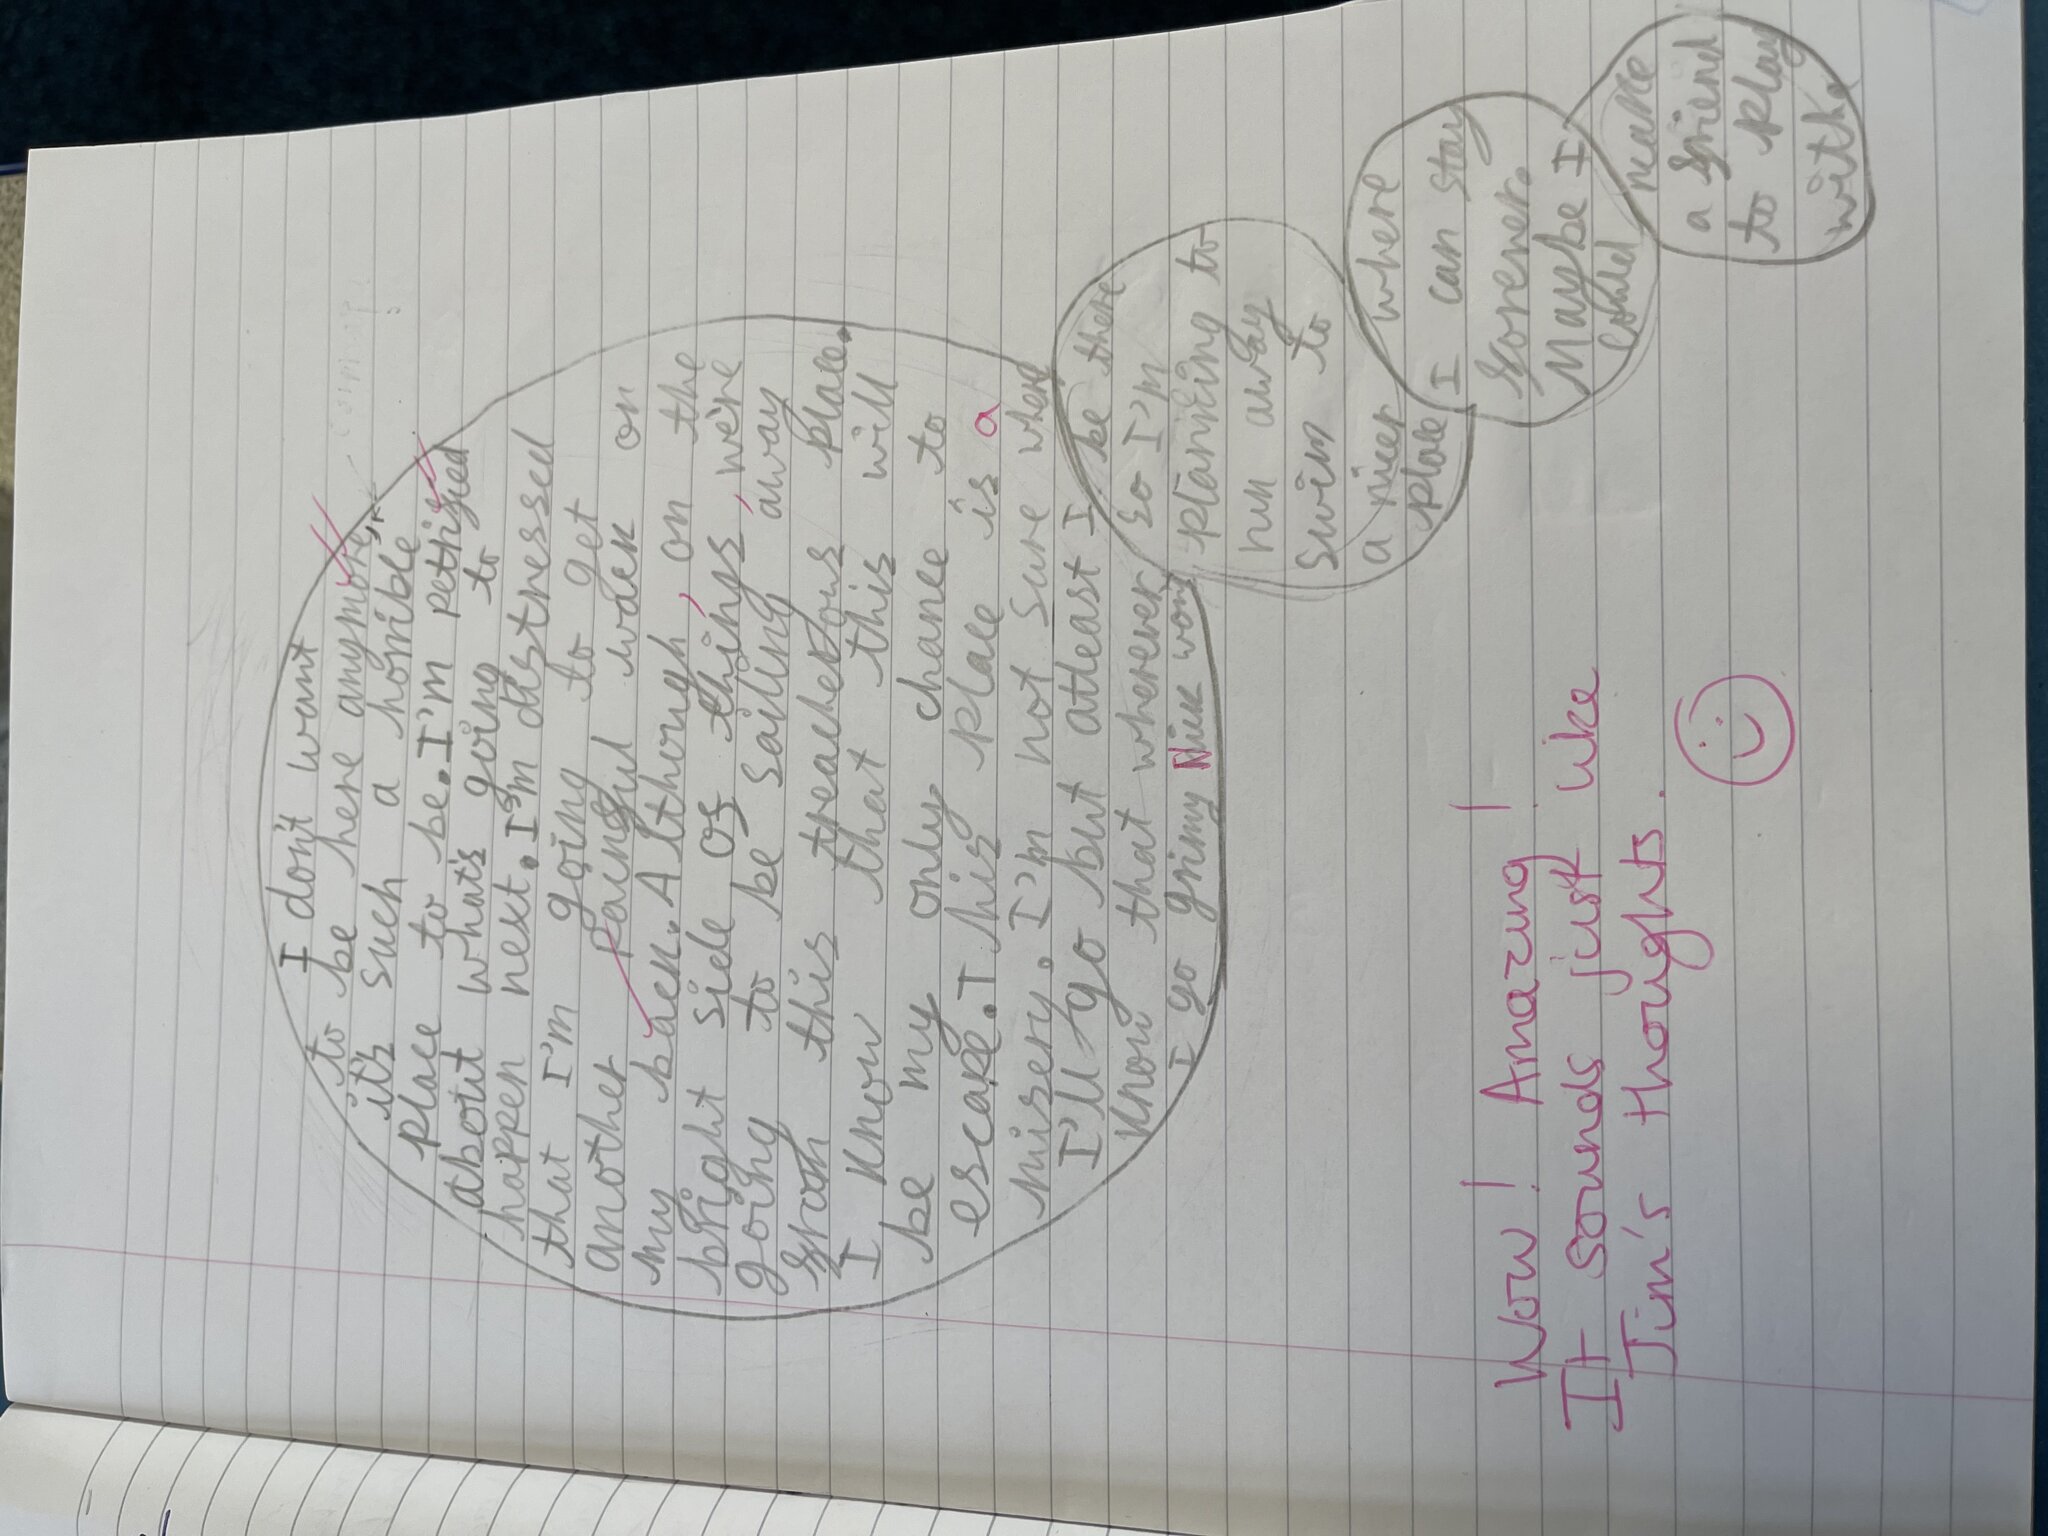 I don't want
to be here anymore,
it's such a horrible
place to be. I'm petrified
about what's going to
happen next. I'm distressed
that I'm going to get
another painful wack on
my back. Although, on the
bright side of things, we're
going to be sailing away
from this treacherous place.
I know that that this will
be my only chance to
escape. This place is a
misery. I'm not sure where
I'll go but atleast I
know that wherever
I go grimy Nick wont
be there
so I'm
planning to
run away
swim to
a nicer
place
where
I can stay
forever.
Maybe I
could
make
a friend
to play
with.
Wow! Amazing!
It sounds just like
Jim's thoughts.